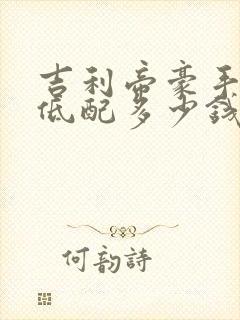 吉利帝豪手
低配多少钱
何韵诗